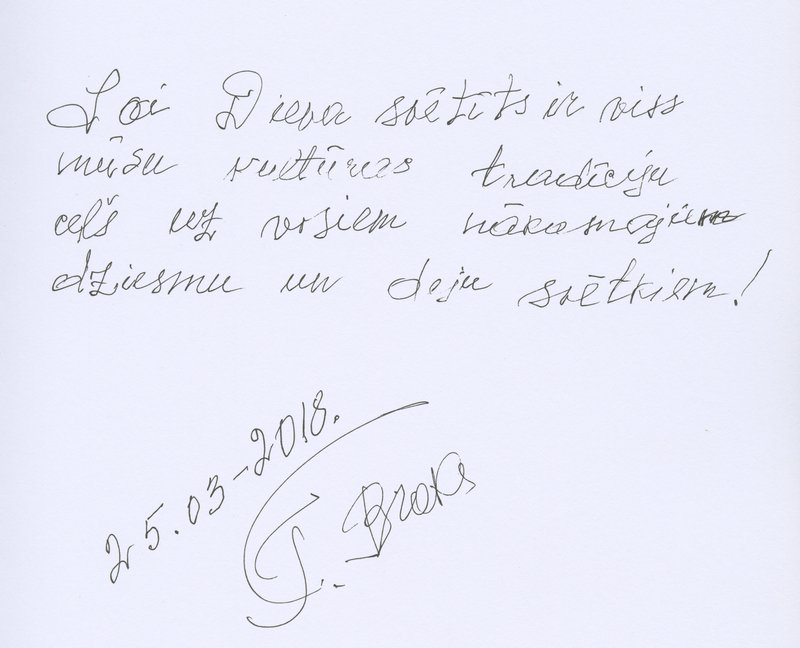 Lai Dieva svētīts ir viss
mūsu kultūras tradīciju
ceļš uz visiem nākamajiem
dziesmu un deju svētkiem!
25.03-2018.
J. Braks